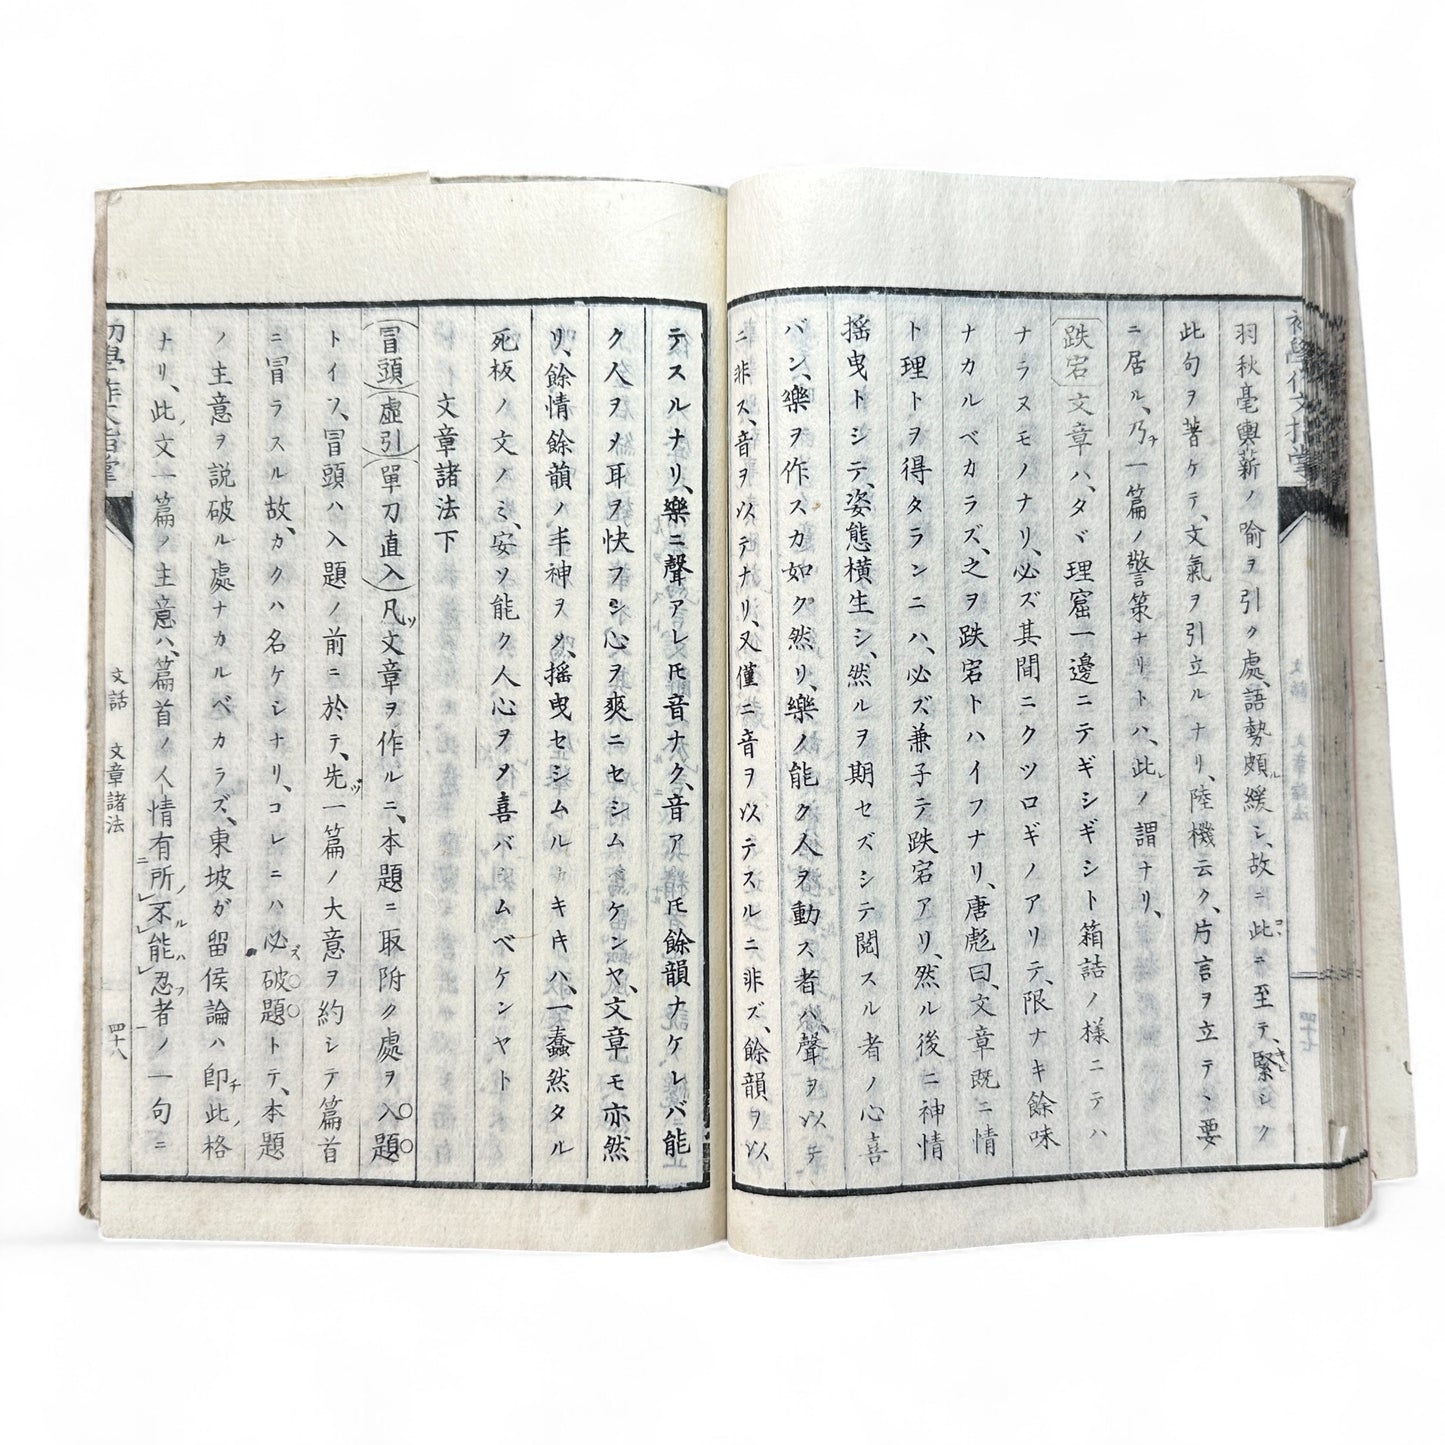 羽秋毫輿薪ノ喩ヲ引ク處、語勢頗ル緩シ、故ニ此コニ至テ、緊キビシク
此句ヲ著ケテ、文氣ヲ引立ルナリ、陸機云ク、片言ヲ立テヽ要
ニ居ル、乃チ一篇ノ警策ナリトハ、此レノ謂ナリ、
跌宕 文章ハ、タヾ理窟一邊ニテギシギシト箱詰ノ樣ニテハ
ナラヌモノナリ、必ズ其間ニクツロギノアリテ、限ナキ餘味
ナカルベカラズ、之ヲ跌宕トハイフナリ、唐彪曰、文章既ニ情
ト理トヲ得タランニハ、必ズ兼子テ跌宕アリ、然ル後ニ神情
搖曳トシテ、姿態橫生シ、然ルヲ期セズシテ閲スル者ノ心喜
バン、樂ヲ作スカ如ク然リ、樂ノ能ク人ヲ動ス者ハ、聲ヲ以テ
ニ非ス、音ヲ以テナリ、又僅ニ音ヲ以テスルニ非ズ、餘韻ヲ以
テスルナリ、樂ニ聲アレ𪜈音ナク、音ア𪜈餘韻ナケレバ、能
ク人ヲメ耳ヲ快フシ心ヲ爽ニセシムケンヤ、文章モ亦然
リ、餘情餘韻ノ丰神ヲメ、搖曳セシムルナキ𪜈ハ、一蠢然タル
死板ノ文ノミ、安ソ能ク人心ヲメ喜バシムベケンヤト
文章諸法下
冒頭 虛引 單刀直入 凡ソ文章ヲ作ルニ、本題ニ取附ク處ヲ入題
トイフ、冒頭ハ入題ノ前ニ於テ、先ヅ一篇ノ大意ヲ約シテ篇首
ニ冒ラスル故、カクハ名ケシナリ、コレニハ必ズ破題トテ、本題
ノ主意ヲ說破ル處ナカルベカラズ、東坡が留侯論ハ即チ此ノ格
ナリ、此ノ文一篇ノ主意ハ、篇首ノ人情有所不能忍者ノ一句ニ
初學作文指掌
文話 文章諸法 四十八
初學作文指掌
文話 文章諸法 四十七